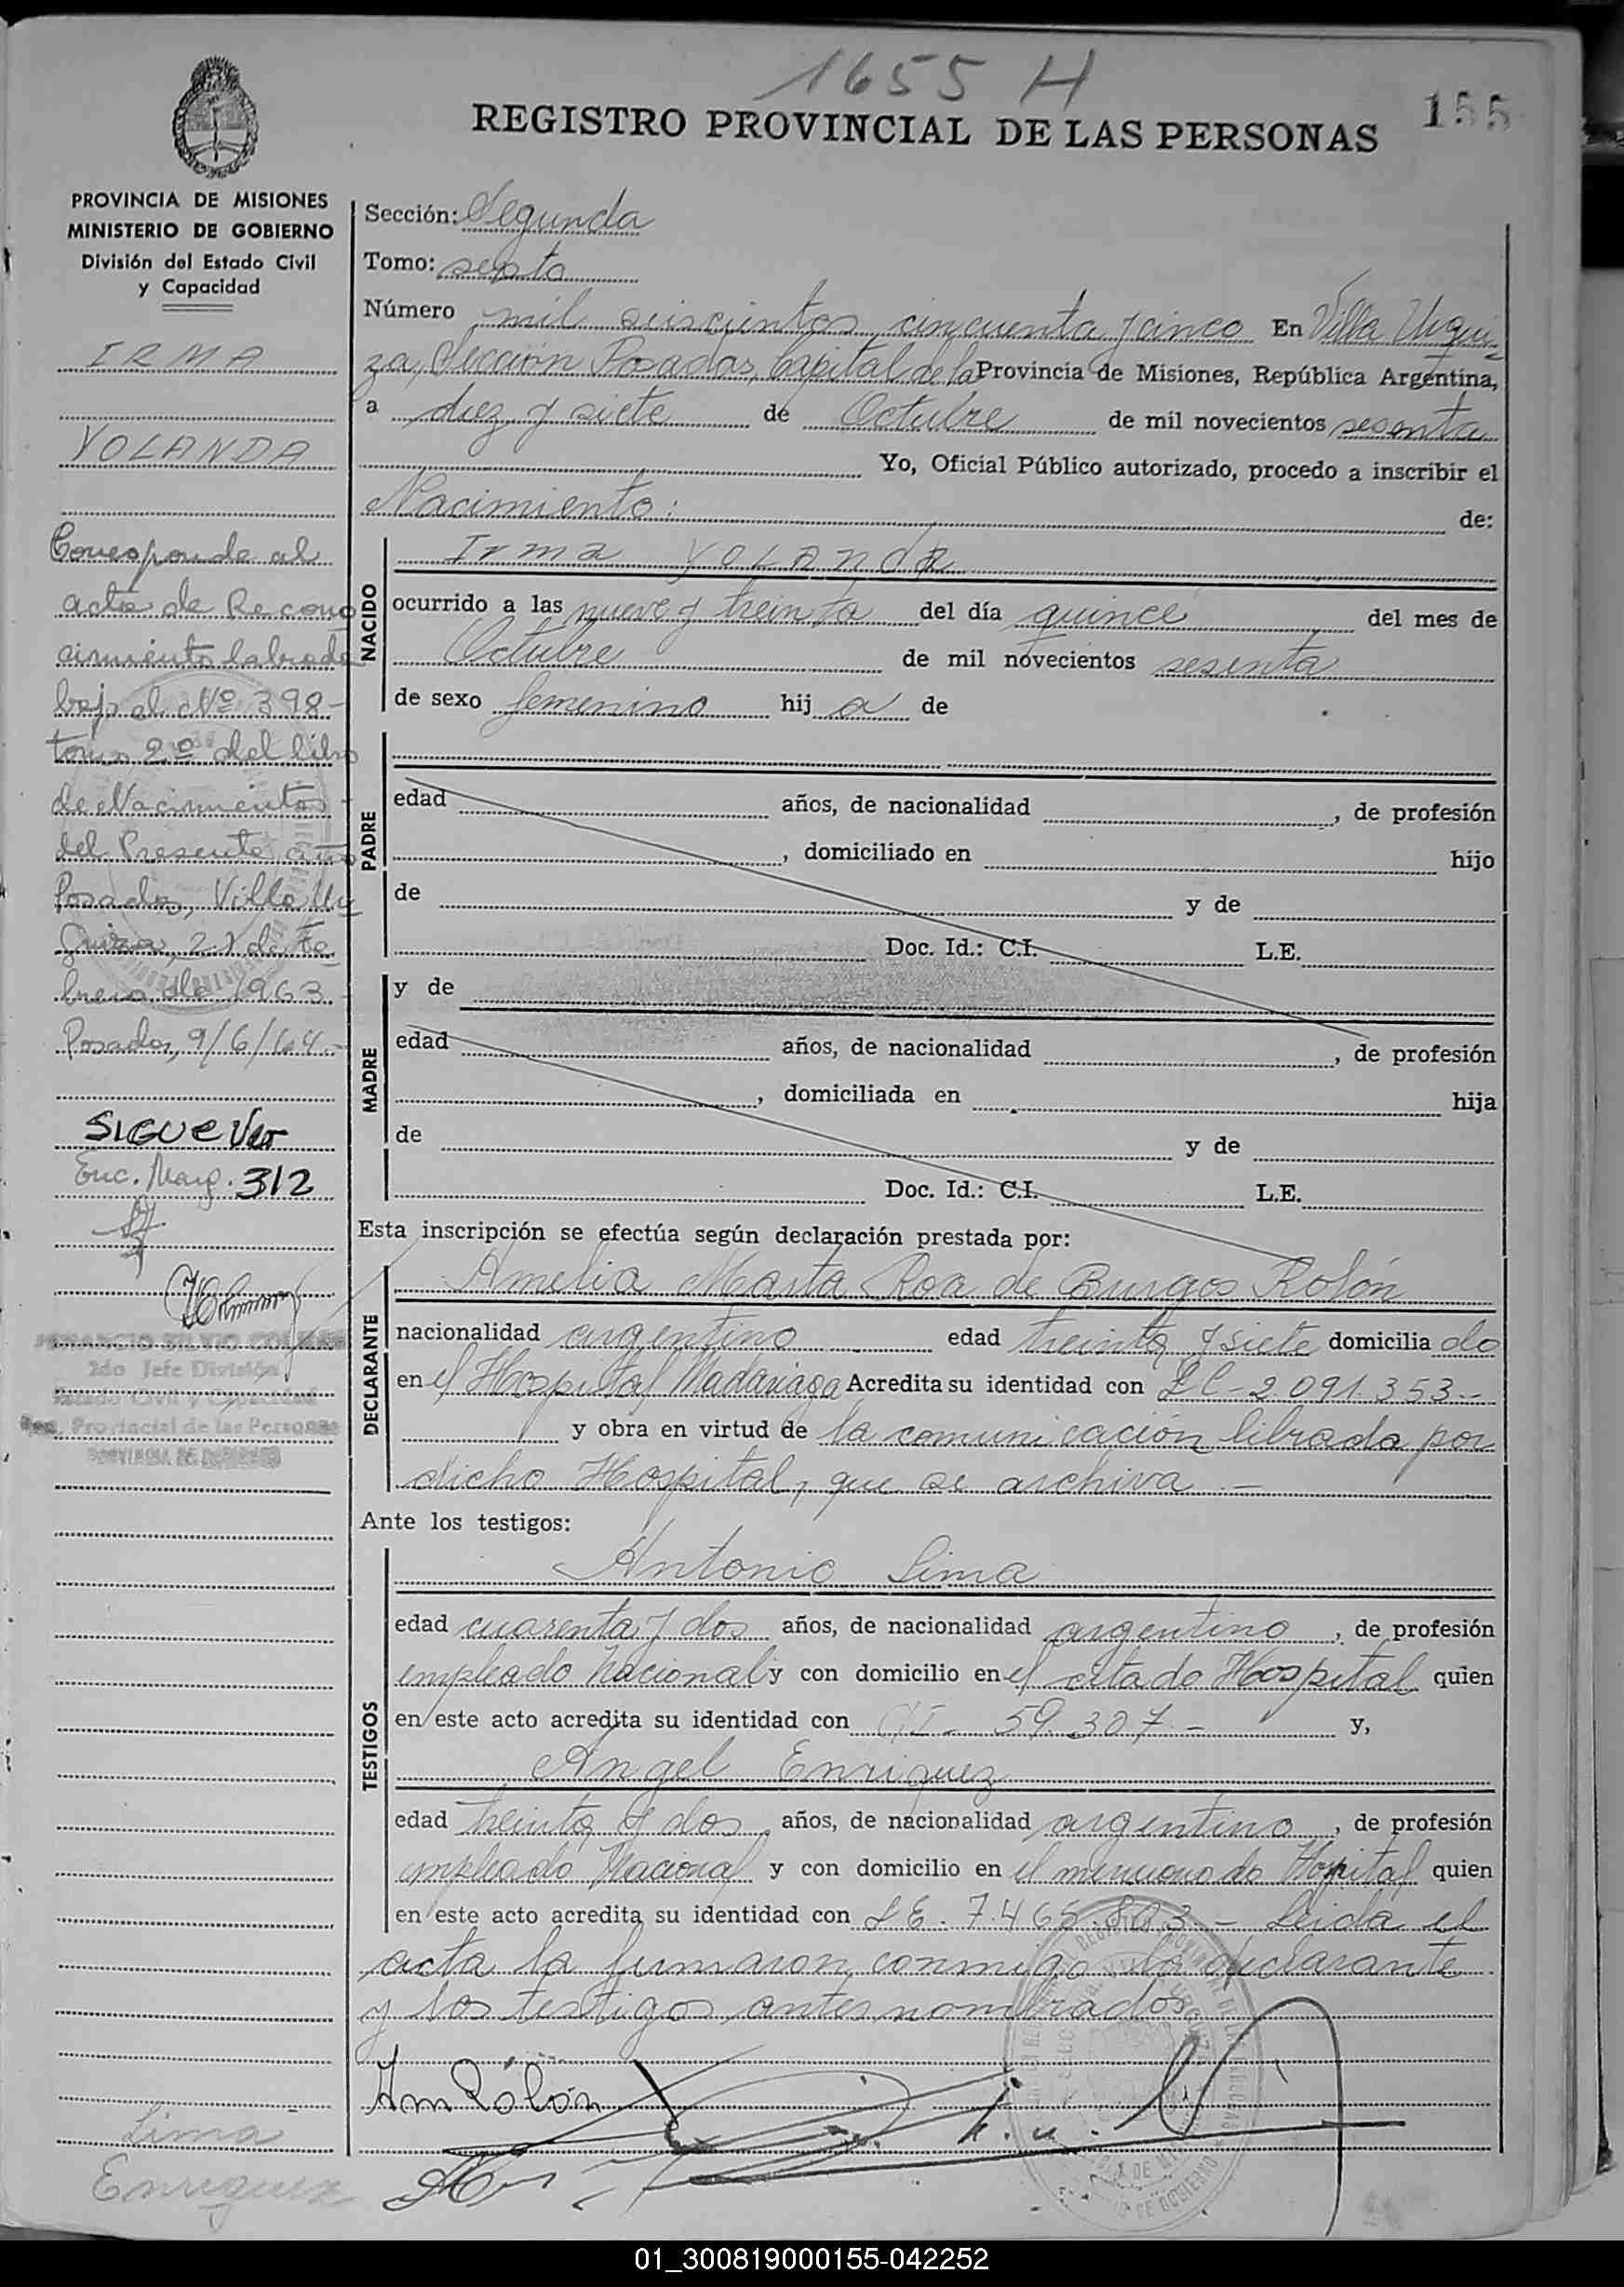 1655 H
155
REGISTRO PROVINCIAL DE LAS PERSONAS
PROVINCIA DE MISIONES
MINISTERIO DE GOBIERNO
División del Estado Civil
y Capacidad
IRMA
YOLANDA
Corresponde al
acta de Recono
cimiento labrada
bajo el Nº 398-
tomo 2º del libro
de Nacimientos
del Presente año
Posadas, Villa Ur
quiza, 21 de Fe
brero de 1963
Posadas, 9/6/64.-
SIGUE Ver
Enc. Marg. 312
2do Jefe División
Estado Civil y Capacidad
Reg. Provincial de las Personas
PROVINCIA DE MISIONES
Lima
Enriquez
Sección: Segunda
Tomo: sexto
Número mil seiscientos cincuenta y cinco En Villa Urqui-
za, Sección Posadas, Capital de la Provincia de Misiones, República Argentina,
a diez y siete de Octubre de mil novecientos sesenta
Yo, Oficial Público autorizado, procedo a inscribir el
Nacimiento: de:
NACIDO
Irma YOLANDA
ocurrido a las nueve y treinta del día quince del mes de
Octubre de mil novecientos sesenta
de sexo femenino hij a de
PADRE
edad años, de nacionalidad , de profesión
, domiciliado en hijo
de y de
Doc. Id.: C.I. L.E.
MADRE
y de
edad años, de nacionalidad , de profesión
, domiciliada en hija
de y de
Doc. Id.: C.I. L.E.
Esta inscripción se efectúa según declaración prestada por:
DECLARANTE
Amelia Marta Roa de Burgos Rolón
nacionalidad argentino edad treinta y siete domicilia do
en el Hospital Madariaga Acredita su identidad con LC-2.091.353.-
y obra en virtud de la comunicación librada por
dicho Hospital, que se archiva.-
Ante los testigos:
TESTIGOS
Antonio Lima
edad cuarenta y dos años, de nacionalidad argentino, de profesión
empleado Nacional y con domicilio en el citado Hospital quien
en este acto acredita su identidad con CI- 59.307.- y,
Angel Enriquez
edad treinta y dos años, de nacionalidad argentino, de profesión
empleado Nacional y con domicilio en el mencionado Hospital quien
en este acto acredita su identidad con LE. 7.465.803.- Leida el
acta la firmaron conmigo la declarante
y los testigos antes nombrados
Am Rolón
01_300819000155-042252